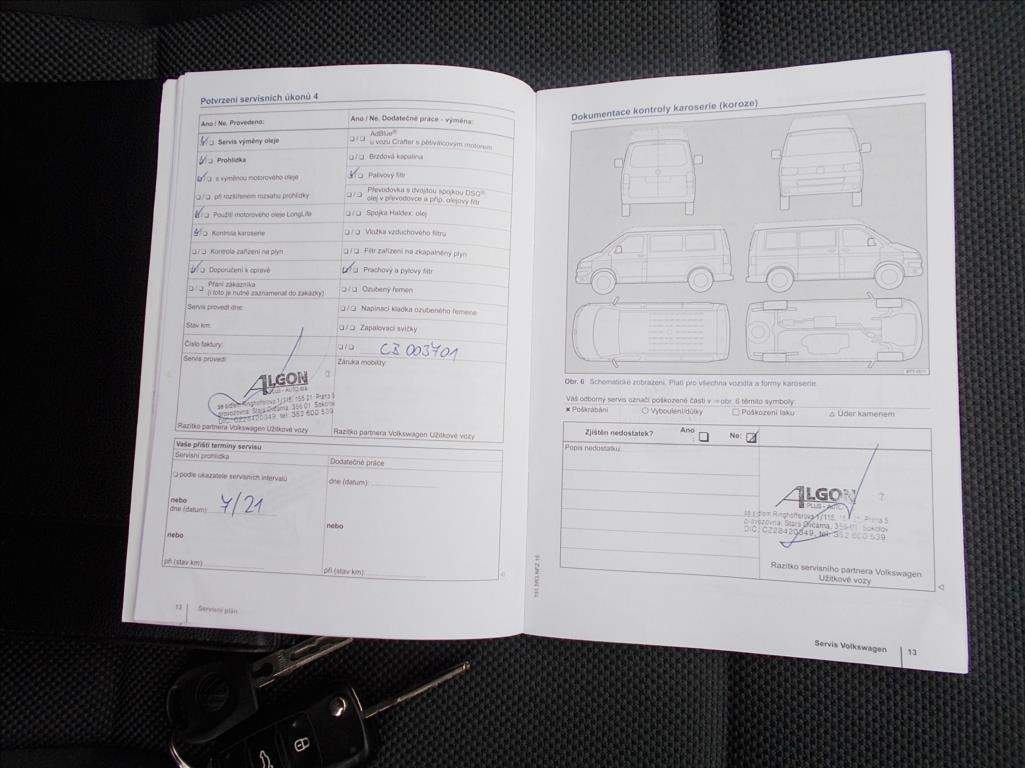 Potvrzení servisních úkonů 4
Ano / Ne. Provedeno:
☑/❏ Servis výměny oleje
☑/❏ Prohlídka
☑/❏ s výměnou motorového oleje
❏/❏ při rozšířeném rozsahu prohlídky
☑/❏ Použití motorového oleje LongLife
☑/❏ Kontrola karoserie
❏/❏ Kontrola zařízení na plyn
☑/❏ Doporučení k opravě
❏/❏ Přání zákazníka
(i toto je nutné zaznamenat do zakázky)
Servis provedl dne:
Stav km:
Číslo faktury:
Servis provedl:
ALGON
PLUS - AUTO, a.s.
se sídlem Ringhofferova 1/115, 155 21 Praha 5
provozovna: Stará Ovčárna, 356 01 Sokolov
DIČ: CZ28420349, tel: 352 600 539
Razítko partnera Volkswagen Užitkové vozy
Ano / Ne. Dodatečné práce - výměna:
❏/❏ AdBlue®
u vozu Crafter s pětiválcovým motorem
❏/❏ Brzdová kapalina
☑/❏ Palivový filtr
❏/❏ Převodovka s dvojitou spojkou DSG®:
olej v převodovce a příp. olejový filtr
❏/❏ Spojka Haldex: olej
❏/❏ Vložka vzduchového filtru
❏/❏ Filtr zařízení na zkapalněný plyn
☑/❏ Prachový a pylový filtr
❏/❏ Ozubený řemen
❏/❏ Napínací kladka ozubeného řemene
❏/❏ Zapalovací svíčky
❏/❏ CB 003701
Záruka mobility:
Razítko partnera Volkswagen Užitkové vozy
Vaše příští termíny servisu
Servisní prohlídka
❏ podle ukazatele servisních intervalů
nebo
dne (datum): 7/21
nebo
při (stav km)
Dodatečné práce
dne (datum):
nebo
při (stav km)
12 Servisní plán
Dokumentace kontroly karoserie (koroze)
Obr. 6 Schematické zobrazení. Platí pro všechna vozidla a formy karoserie.
Váš odborný servis označí poškozené části v ⇒ obr. 6 těmito symboly:
× Poškrábání ○ Vyboulení/důlky □ Poškození laku △ Úder kamenem
Zjištěn nedostatek? Ano: ❏ Ne: ☑
Popis nedostatku:
ALGON
PLUS - AUTO
se sídlem Ringhofferova 1/115, 155 21, Praha 5
provozovna: Stará Ovčárna, 356 01 Sokolov
DIČ: CZ28420349, tel: 352 600 539
Razítko servisního partnera Volkswagen
Užitkové vozy
Servis Volkswagen 13